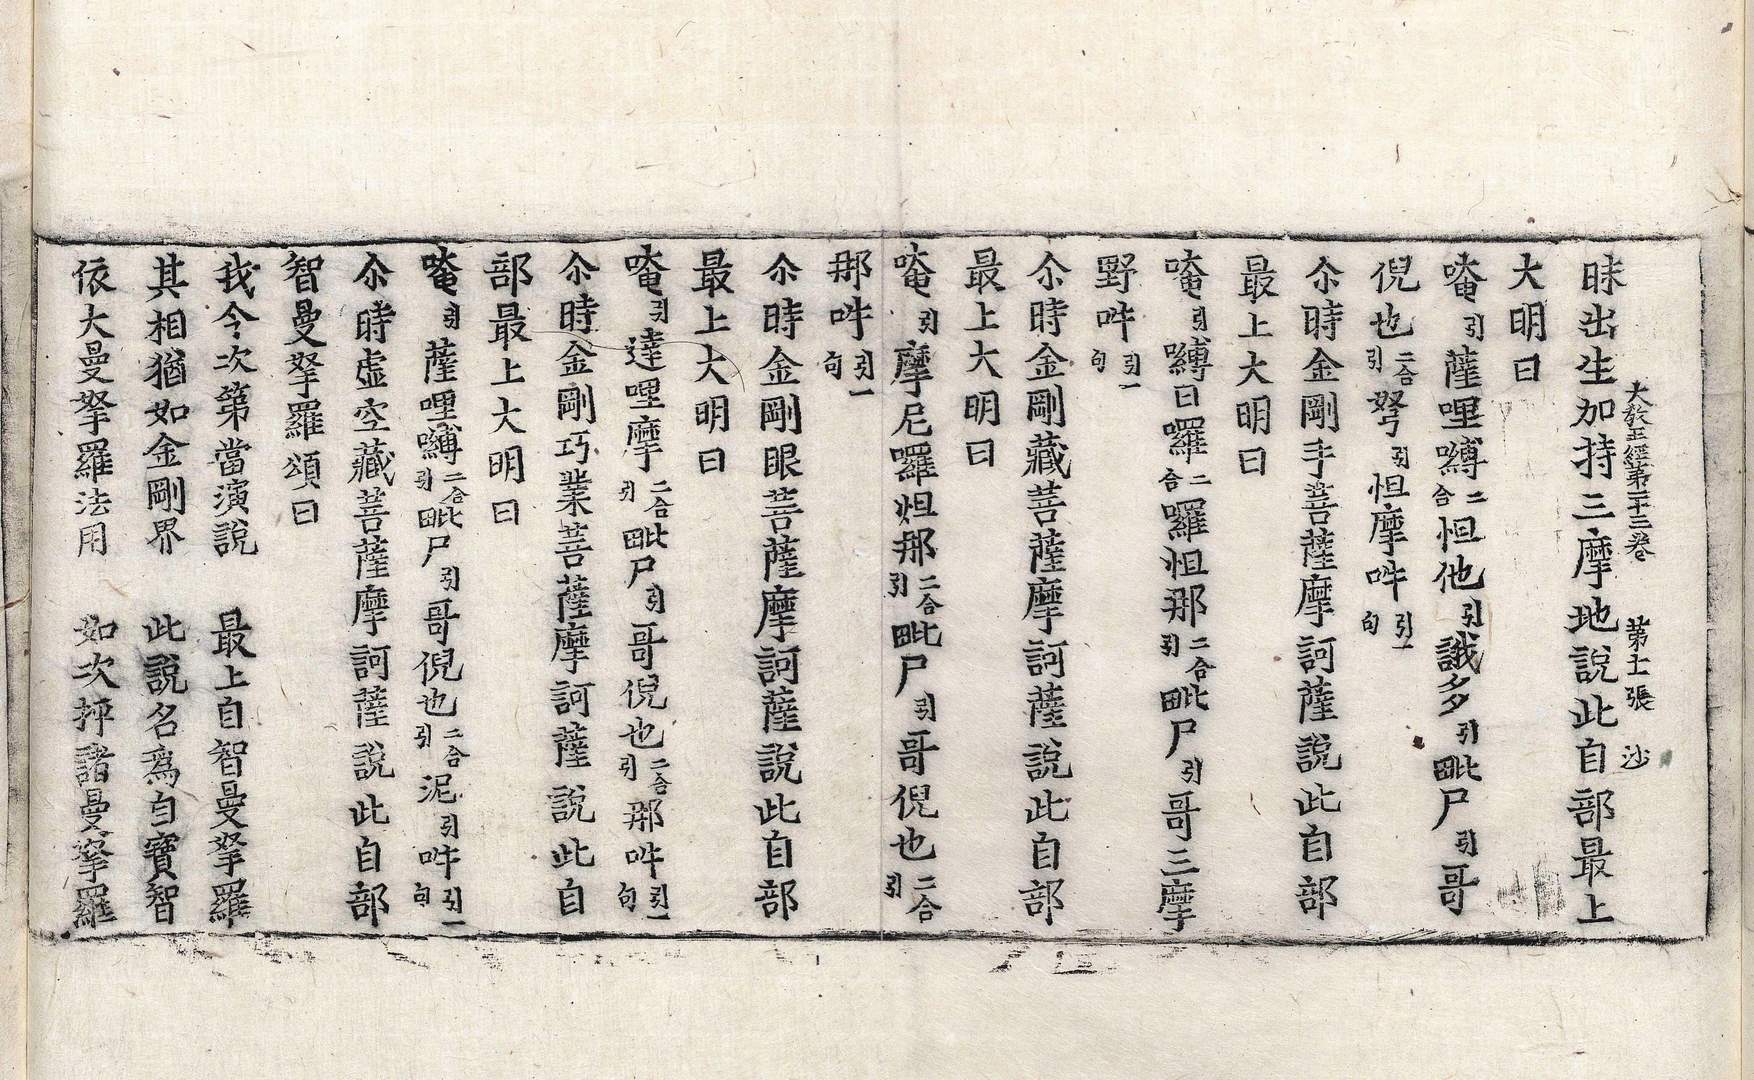 昧出生加持三摩地說此自部最上
大教王經第二十三卷 第十一張 沙
大明曰
唵引薩哩嚩二合怛他引誐多引毗尸引哥
倪也二合引拏引怛摩吽引一句
尒時金剛手菩薩摩訶薩說此自部
最上大明曰
唵引嚩日囉二合囉怛那二合引毗尸引哥三摩
野吽引一句
尒時金剛藏菩薩摩訶薩說此自部
最上大明曰
唵引摩尼囉怛那二合引毗尸引哥倪也二合引
那吽引一句
尒時金剛眼菩薩摩訶薩說此自部
最上大明曰
唵引達哩摩二合引毗尸引哥倪也二合引那吽引一句
尒時金剛巧業菩薩摩訶薩說此自
部最上大明曰
唵引薩哩嚩二合引毗尸引哥倪也二合引泥引吽引一句
尒時虛空藏菩薩摩訶薩說此自部
智曼拏羅頌曰
我今次第當演說 最上自智曼拏羅
其相猶如金剛界 此說名爲自寶智
依大曼拏羅法用 如次抨諸曼拏羅